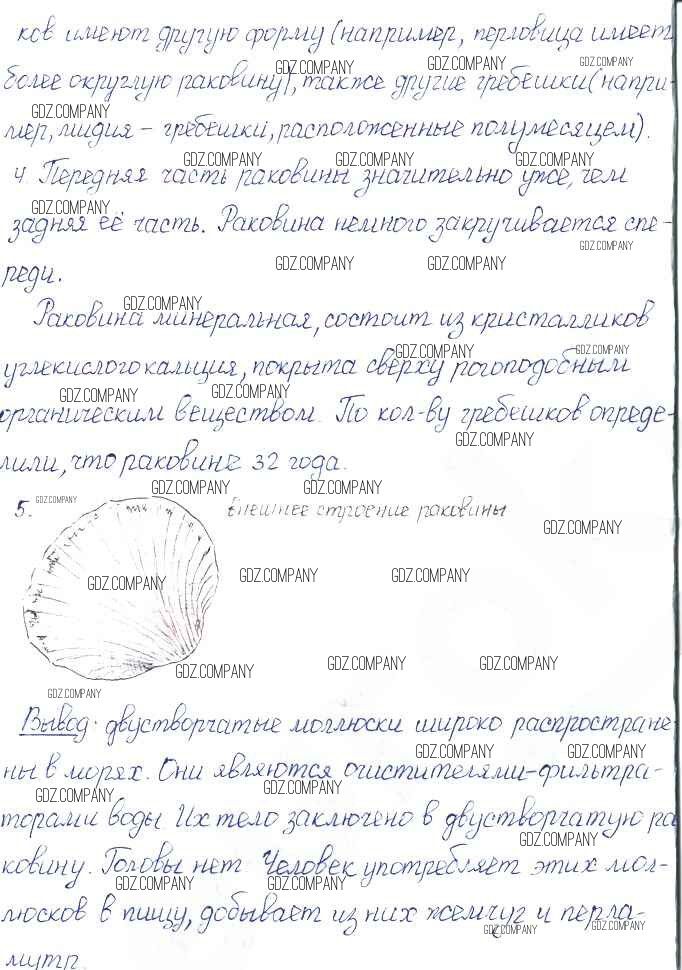 ков имеют другую форму (например, перловица имеет
более округлую раковину), также другие гребешки (напри-
мер, мидия – гребешки, расположенные полумесяцем).
4. Передняя часть раковины значительно уже, чем
задняя её часть. Раковина немного закручивается спе-
реди.
Раковина минеральная, состоит из кристалликов
углекислого кальция, покрыта сверху рогоподобным
органическим веществом. По кол-ву гребешков опреде-
лили, что раковине 32 года.
5. Внешнее строение раковины
Вывод: двустворчатые моллюски широко распростране
ны в морях. Они являются очистителями-фильтра-
торами воды. Их тело заключено в двустворчатую ра
ковину. Головы нет. Человек употребляет этих мол-
люсков в пищу, добывает из них жемчуг и перла-
мутр.
GDZ.COMPANY